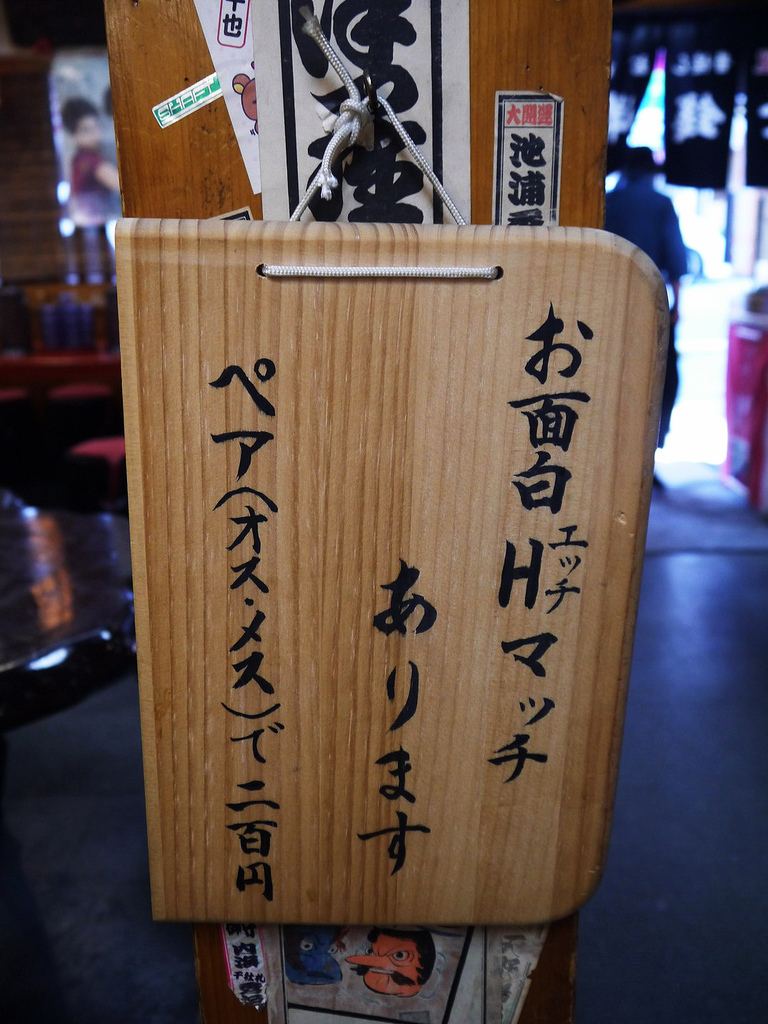 お面白Hマッチ
エッチ
あります
ペア(オス・メス)で二百円
大開運
池浦
也